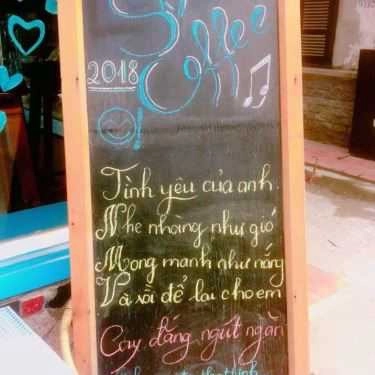 Sỹ Coffee
2018
Tình yêu của anh
Nhẹ nhàng như gió
Mong manh như nắng
Và rồi để lại cho em
Cay đắng ngút ngàn